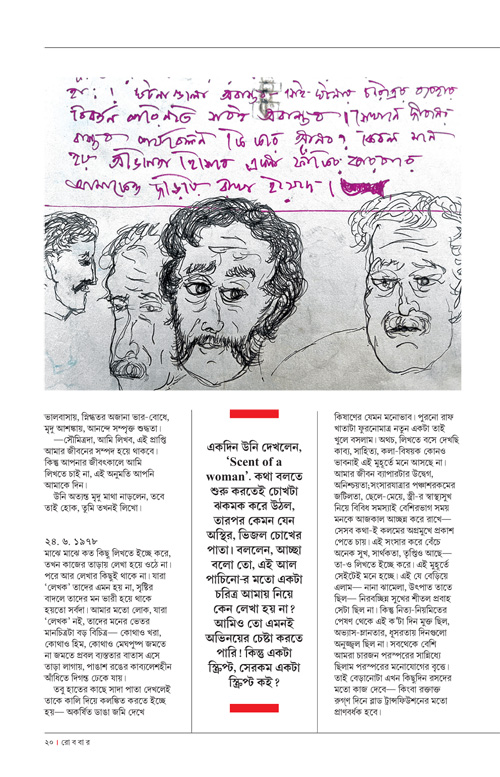 ভালবাসায়, স্নিগ্ধতর অজানা ভার-বোধে,
মৃদু আশঙ্কায়, আনন্দে সম্পৃক্ত শুদ্ধতা।
—সৌমিত্রদা, আমি লিখব, এই প্রাপ্তি
আমার জীবনের সম্পদ হয়ে থাকবে।
কিন্তু আপনার জীবৎকালে আমি
লিখতে চাই না, এই অনুমতি আপনি
আমাকে দিন।
উনি অত্যন্ত মৃদু মাথা নাড়লেন, তবে
তাই হোক, তুমি তখনই লিখো।
২৪. ৬. ১৯৭৮
মাঝে মাঝে কত কিছু লিখতে ইচ্ছে করে,
তখন কাজের তাড়ায় লেখা হয়ে ওঠে না।
পরে আর লেখার কিছুই থাকে না। যারা
‘লেখক’ তাদের এমন হয় না, সৃষ্টির
বাদলে তাদের মন ভারী হয়ে থাকে
হয়তো সর্বদা। আমার মতো লোক, যারা
‘লেখক’ নই, তাদের মনের ভেতর
মানচিত্রটা বড় বিচিত্র— কোথাও খরা,
কোথাও হিম, কোথাও মেঘপুষ্প জমতে
না জমতে প্রবল ব্যস্ততার বাতাস এসে
তাড়া লাগায়, পাঙাশ রঙের কাব্যলেশহীন
আঁধিতে দিগন্ত ঢেকে যায়।
তবু হাতের কাছে সাদা পাতা দেখলেই
তাকে কালি দিয়ে কলঙ্কিত করতে ইচ্ছে
হয়— অকর্ষিত ডাঙা জমি দেখে
একদিন উনি দেখলেন,
‘Scent of a
woman’. কথা বলতে
শুরু করতেই চোখটা
ঝকমক করে উঠল,
তারপর কেমন যেন
অস্থির, ভিজল চোখের
পাতা। বললেন, আচ্ছা
বলো তো, এই আল
পাচিনো-র মতো একটা
চরিত্র আমায় নিয়ে
কেন লেখা হয় না?
আমিও তো এমনই
অভিনয়ের চেষ্টা করতে
পারি! কিন্তু একটা
স্ক্রিপ্ট, সেরকম একটা
স্ক্রিপ্ট কই?
কিষাণের যেমন মনোভাব। পুরনো রাফ
খাতাটা ফুরনোমাত্র নতুন একটা তাই
খুলে বসলাম। অথচ, লিখতে বসে দেখছি
কাব্য, সাহিত্য, কলা-বিষয়ক কোনও
ভাবনাই এই মুহূর্তে মনে আসছে না।
আমার জীবন ব্যাপারটার উদ্বেগ,
অনিশ্চয়তা, সংসারযাত্রার পঞ্চাশরকমের
জটিলতা, ছেলে-মেয়ে, স্ত্রী-র স্বাস্থ্যসুখ
নিয়ে বিবিধ সমস্যাই বেশিরভাগ সময়
মনকে আজকাল আচ্ছন্ন করে রাখে—
সেসব কথা-ই কলমের অগ্রমুখে প্রকাশ
পেতে চায়। এই সংসার করে বেঁচে
অনেক সুখ, সার্থকতা, তৃপ্তিও আছে—
তা-ও লিখতে ইচ্ছে করে। এই মুহূর্তে
সেইটেই মনে হচ্ছে। এই যে বেড়িয়ে
এলাম— নানা ঝামেলা, উৎপাত তাতে
ছিল— নিরবচ্ছিন্ন সুখের শীতল প্রবাহ
সেটা ছিল না। কিন্তু নিত্য-নিয়মিতের
পেষণ থেকে এই ক’টা দিন মুক্ত ছিল,
অভ্যাস-ম্লানতার, ধূসরতায় দিনগুলো
অনুজ্জ্বল ছিল না। সবথেকে বেশি
আমরা চারজন পরস্পরের সান্নিধ্যে
ছিলাম পরস্পরের মনোযোগের বৃত্তে।
তাই বেড়ানোটা এখন কিছুদিন রসদের
মতো কাজ দেবে— কিংবা রক্তাক্ত
রুগ্‌ণ দিনে ব্লাড ট্রান্সফিউশনের মতো
প্রাণবর্ধক হবে।
২০ । রো ব বা র